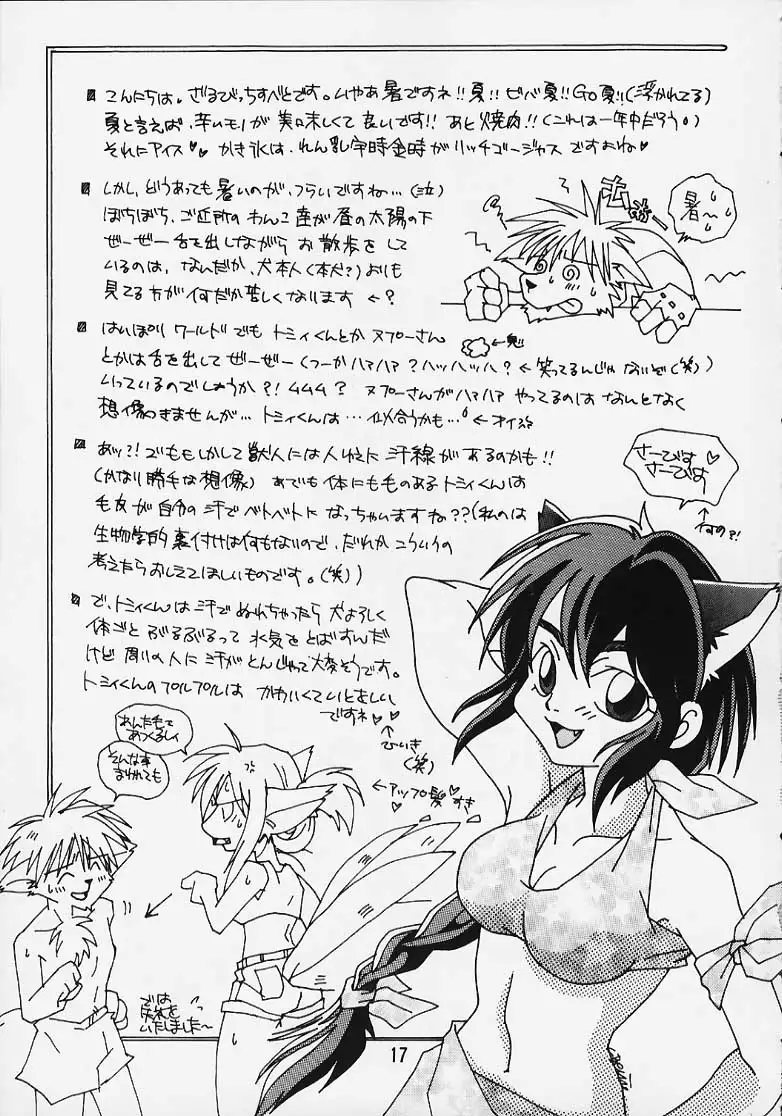 こんにちは。ざるびっちすべとです。いやあ暑ですネ!!夏!!ビバ夏!!Go夏!!(浮かれてる)
夏と言えば、辛いモノが美味しくて良いです!!あと焼肉!!(これは一年中だろう。)
それにアイス♡♡かき氷は、れん乳宇時金時がリッチゴージャスですよね♡
しかし、どうあっても暑いのが、つらいですね…(泣)
ぼちぼち、ご近所のわんこ達が昼の太陽の下
ぜーぜー舌を出しながらお散歩をして
いるのは、なんだか、犬本人(本犬?)よりも
見てる方が何だか苦しくなります ←?
暑〜
はいぱぁワールドでもトミィくんとかヌプーさん
とかは舌を出してぜーぜー(つーかハァハァ?ハッハッハ?←笑ってるんじゃないぞ(笑))
いっているのでしょうか?!ムムム?ヌプーさんがハァハァやってるのはなんとなく
想像つきませんが…トミィくんは…似合うかも…←オイ
あッ?!でももしかして獣人には人ゆえに汗線があるのかも!!
(かなり勝手な想像)あでも体にも毛のあるトミィくんは
毛皮が自分の汗でベトベトになっちゃいますね??(私のは
生物学的裏付けは何もないので、だれかこういうの
考えたらおしえてほしいものです。(笑))
で、トミィくんは汗でぬれちゃったら犬よろしく
体ごとぶるぶるって水気をとばすんだ
けど周りの人に汗がとんじゃって大変そうです。
トミィくんのプルプルはかわいくていとおしい
ですネ♡♡
↑ひいき(笑)
←アップ髪♡すき
さーびす♡
さーびす
↑何の?!
あんた毛で
あつくるしく
そんな事
言われても
では
失礼を
いたしました〜
17